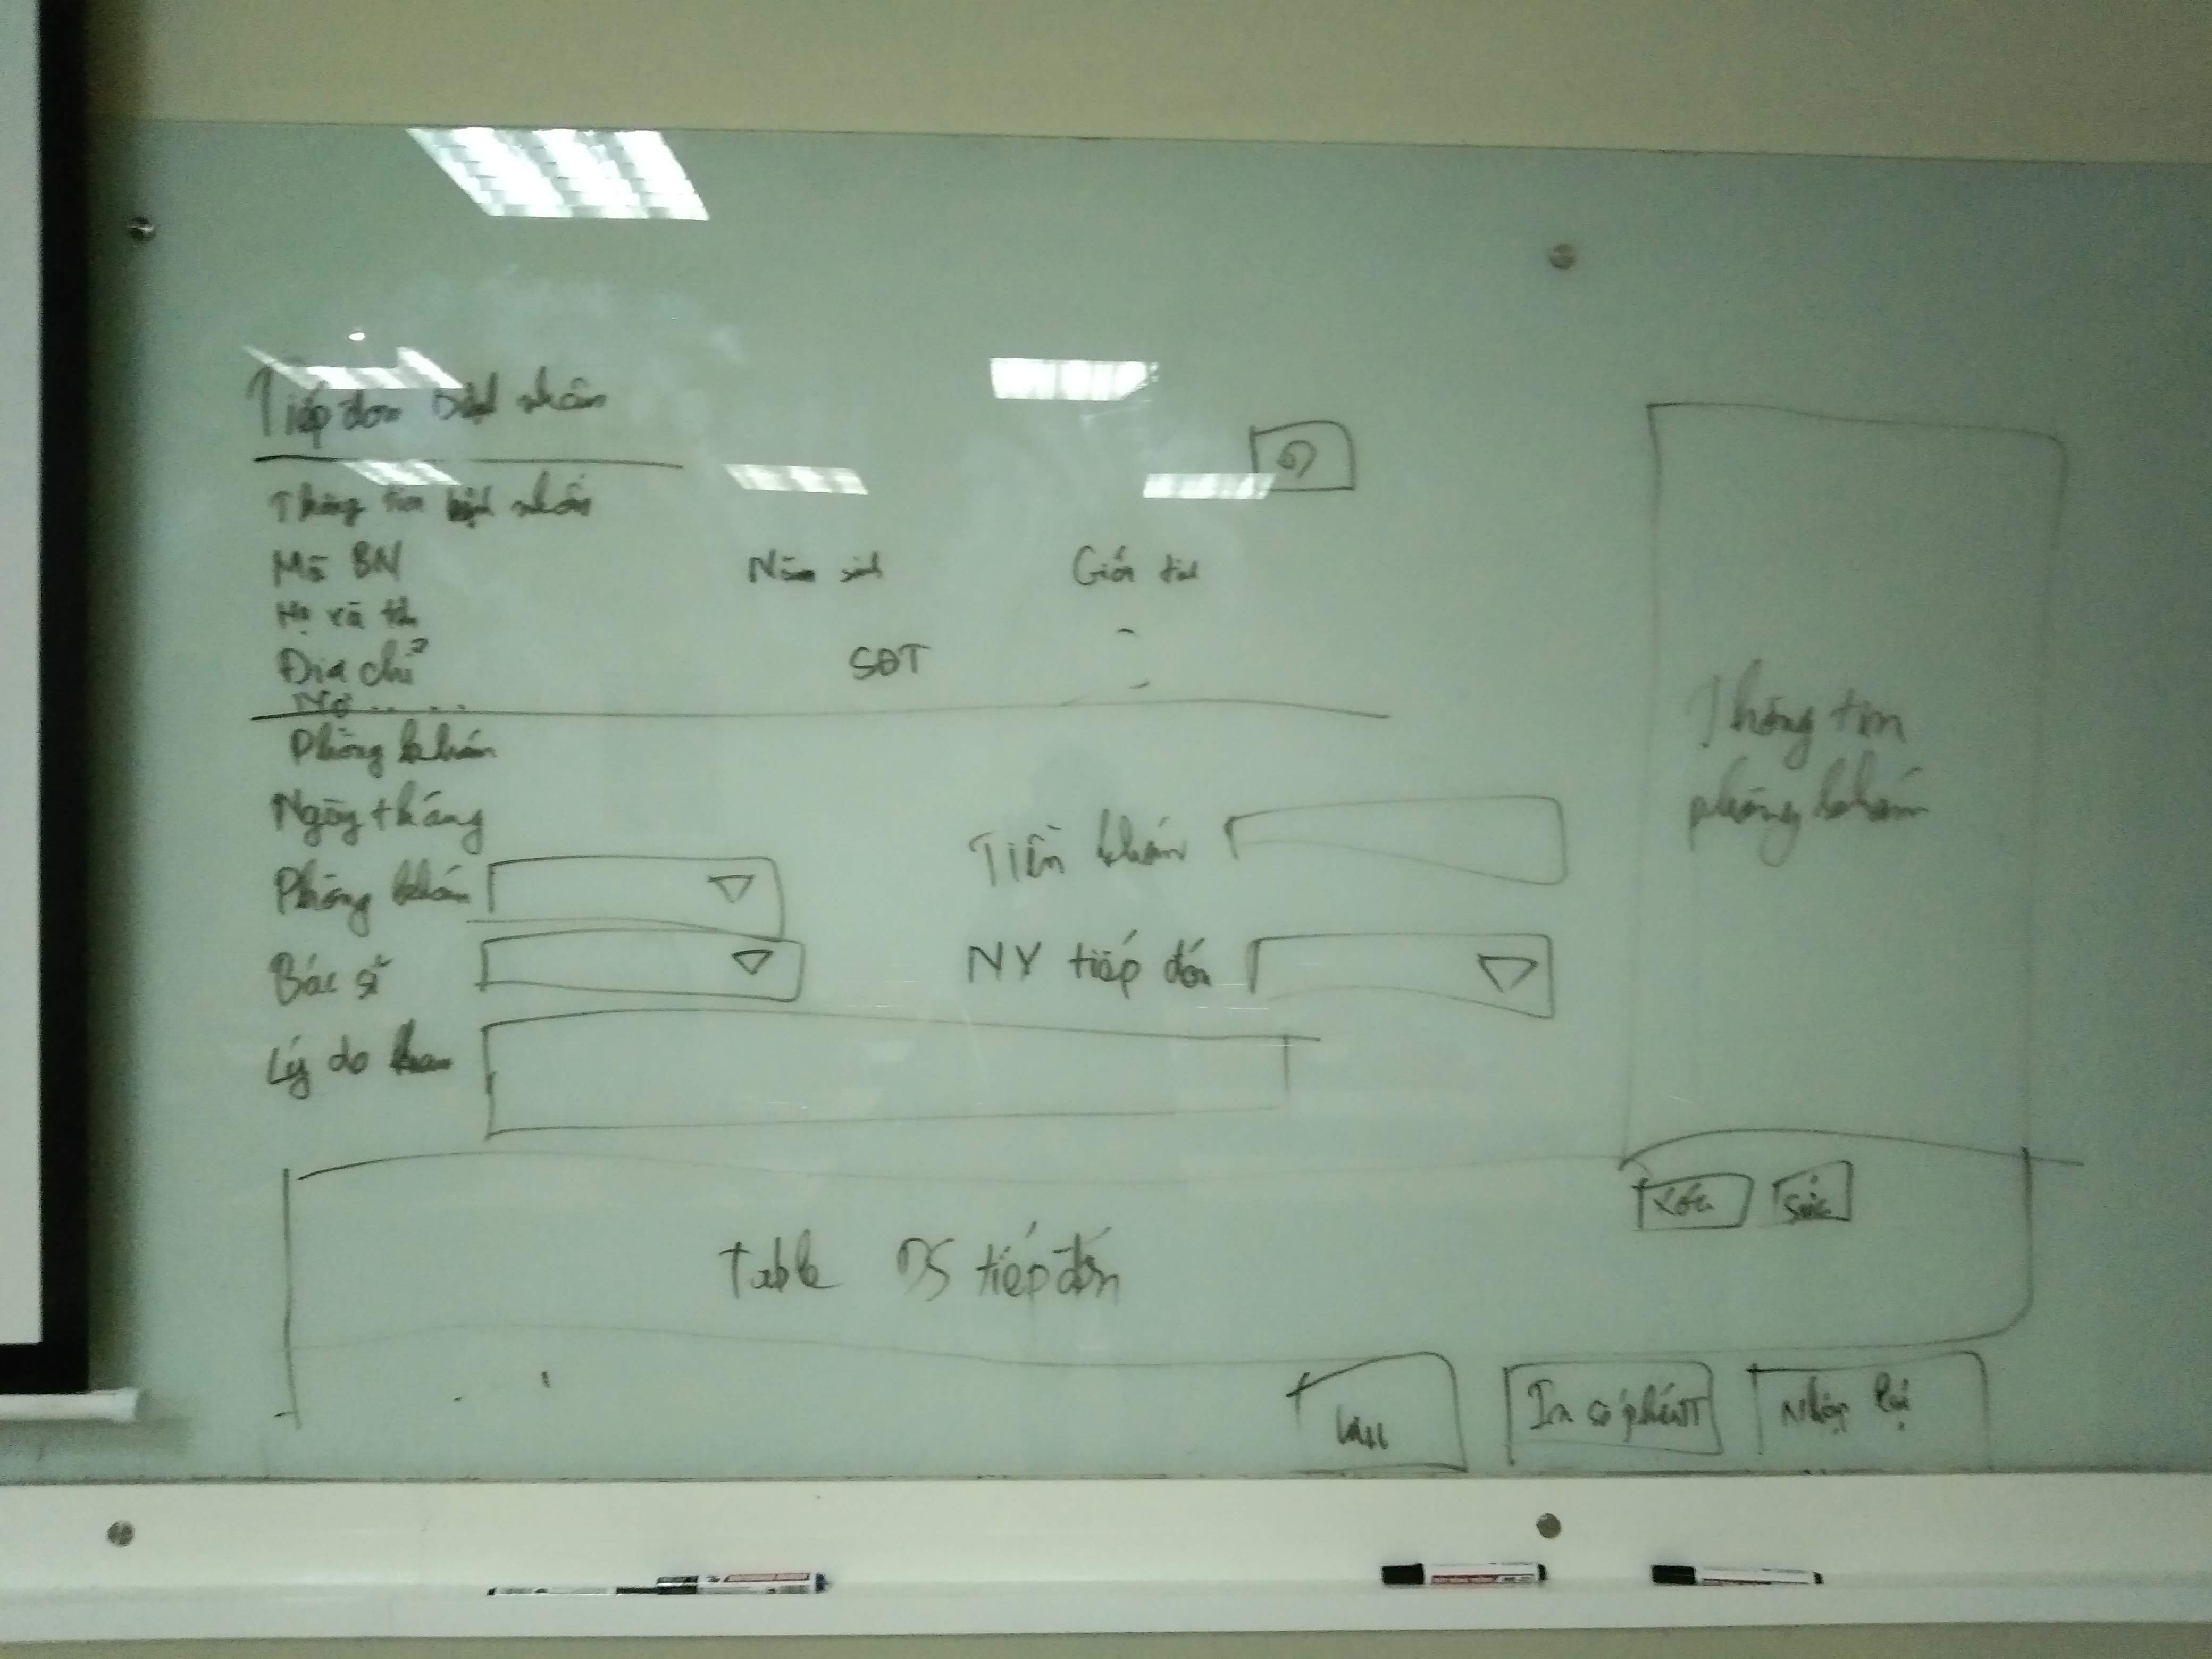 Tiếp đón bệnh nhân
Thông tin bệnh nhân
Mã BN Năm sinh Giới tính
Họ và tên
Địa chỉ SĐT
Nợ .. ..
Phòng khám
Ngày tháng
Phòng khám Tiền khám
Bác sĩ NV tiếp đón
Lý do kham
Thông tin
phòng khám
Xóa Sửa
Table DS tiếp đón
Lưu In số phiếu TT Nhập lại